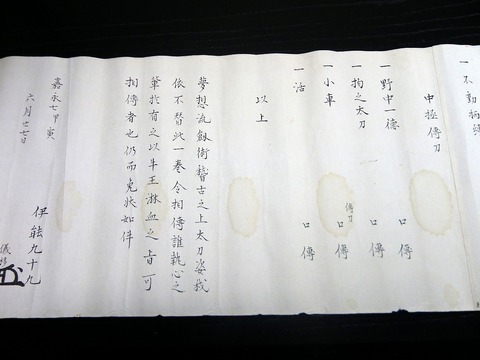 一不動
中極傳刀
一野中一德 口傳
一拘之太刀 口傳
傳刀
一小車 口傳
一沽 口傳
以上
夢想流劔術稽古之上太刀姿我
依不替此一巻令相傳誰執心之
輩於有之以牛王淋血之上旨可
相傳者也仍而免状如件
嘉永七甲寅
六月廿七日
伊能九十九